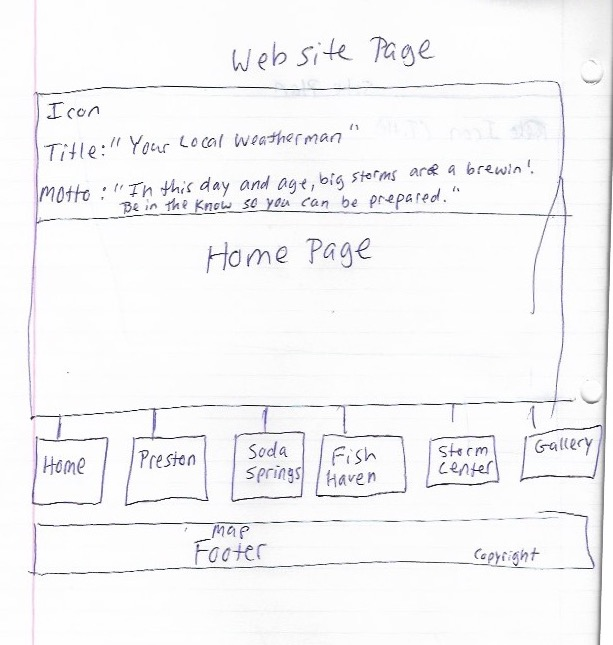 Website Page
Icon
Title: "Your Local Weatherman"
Motto: "In this day and age, big storms are a brewin'.
Be in the know so you can be prepared."
Home Page
Home
Preston
Soda
Springs
Fish
Haven
Storm
Center
Gallery
Map
Footer
Copyright